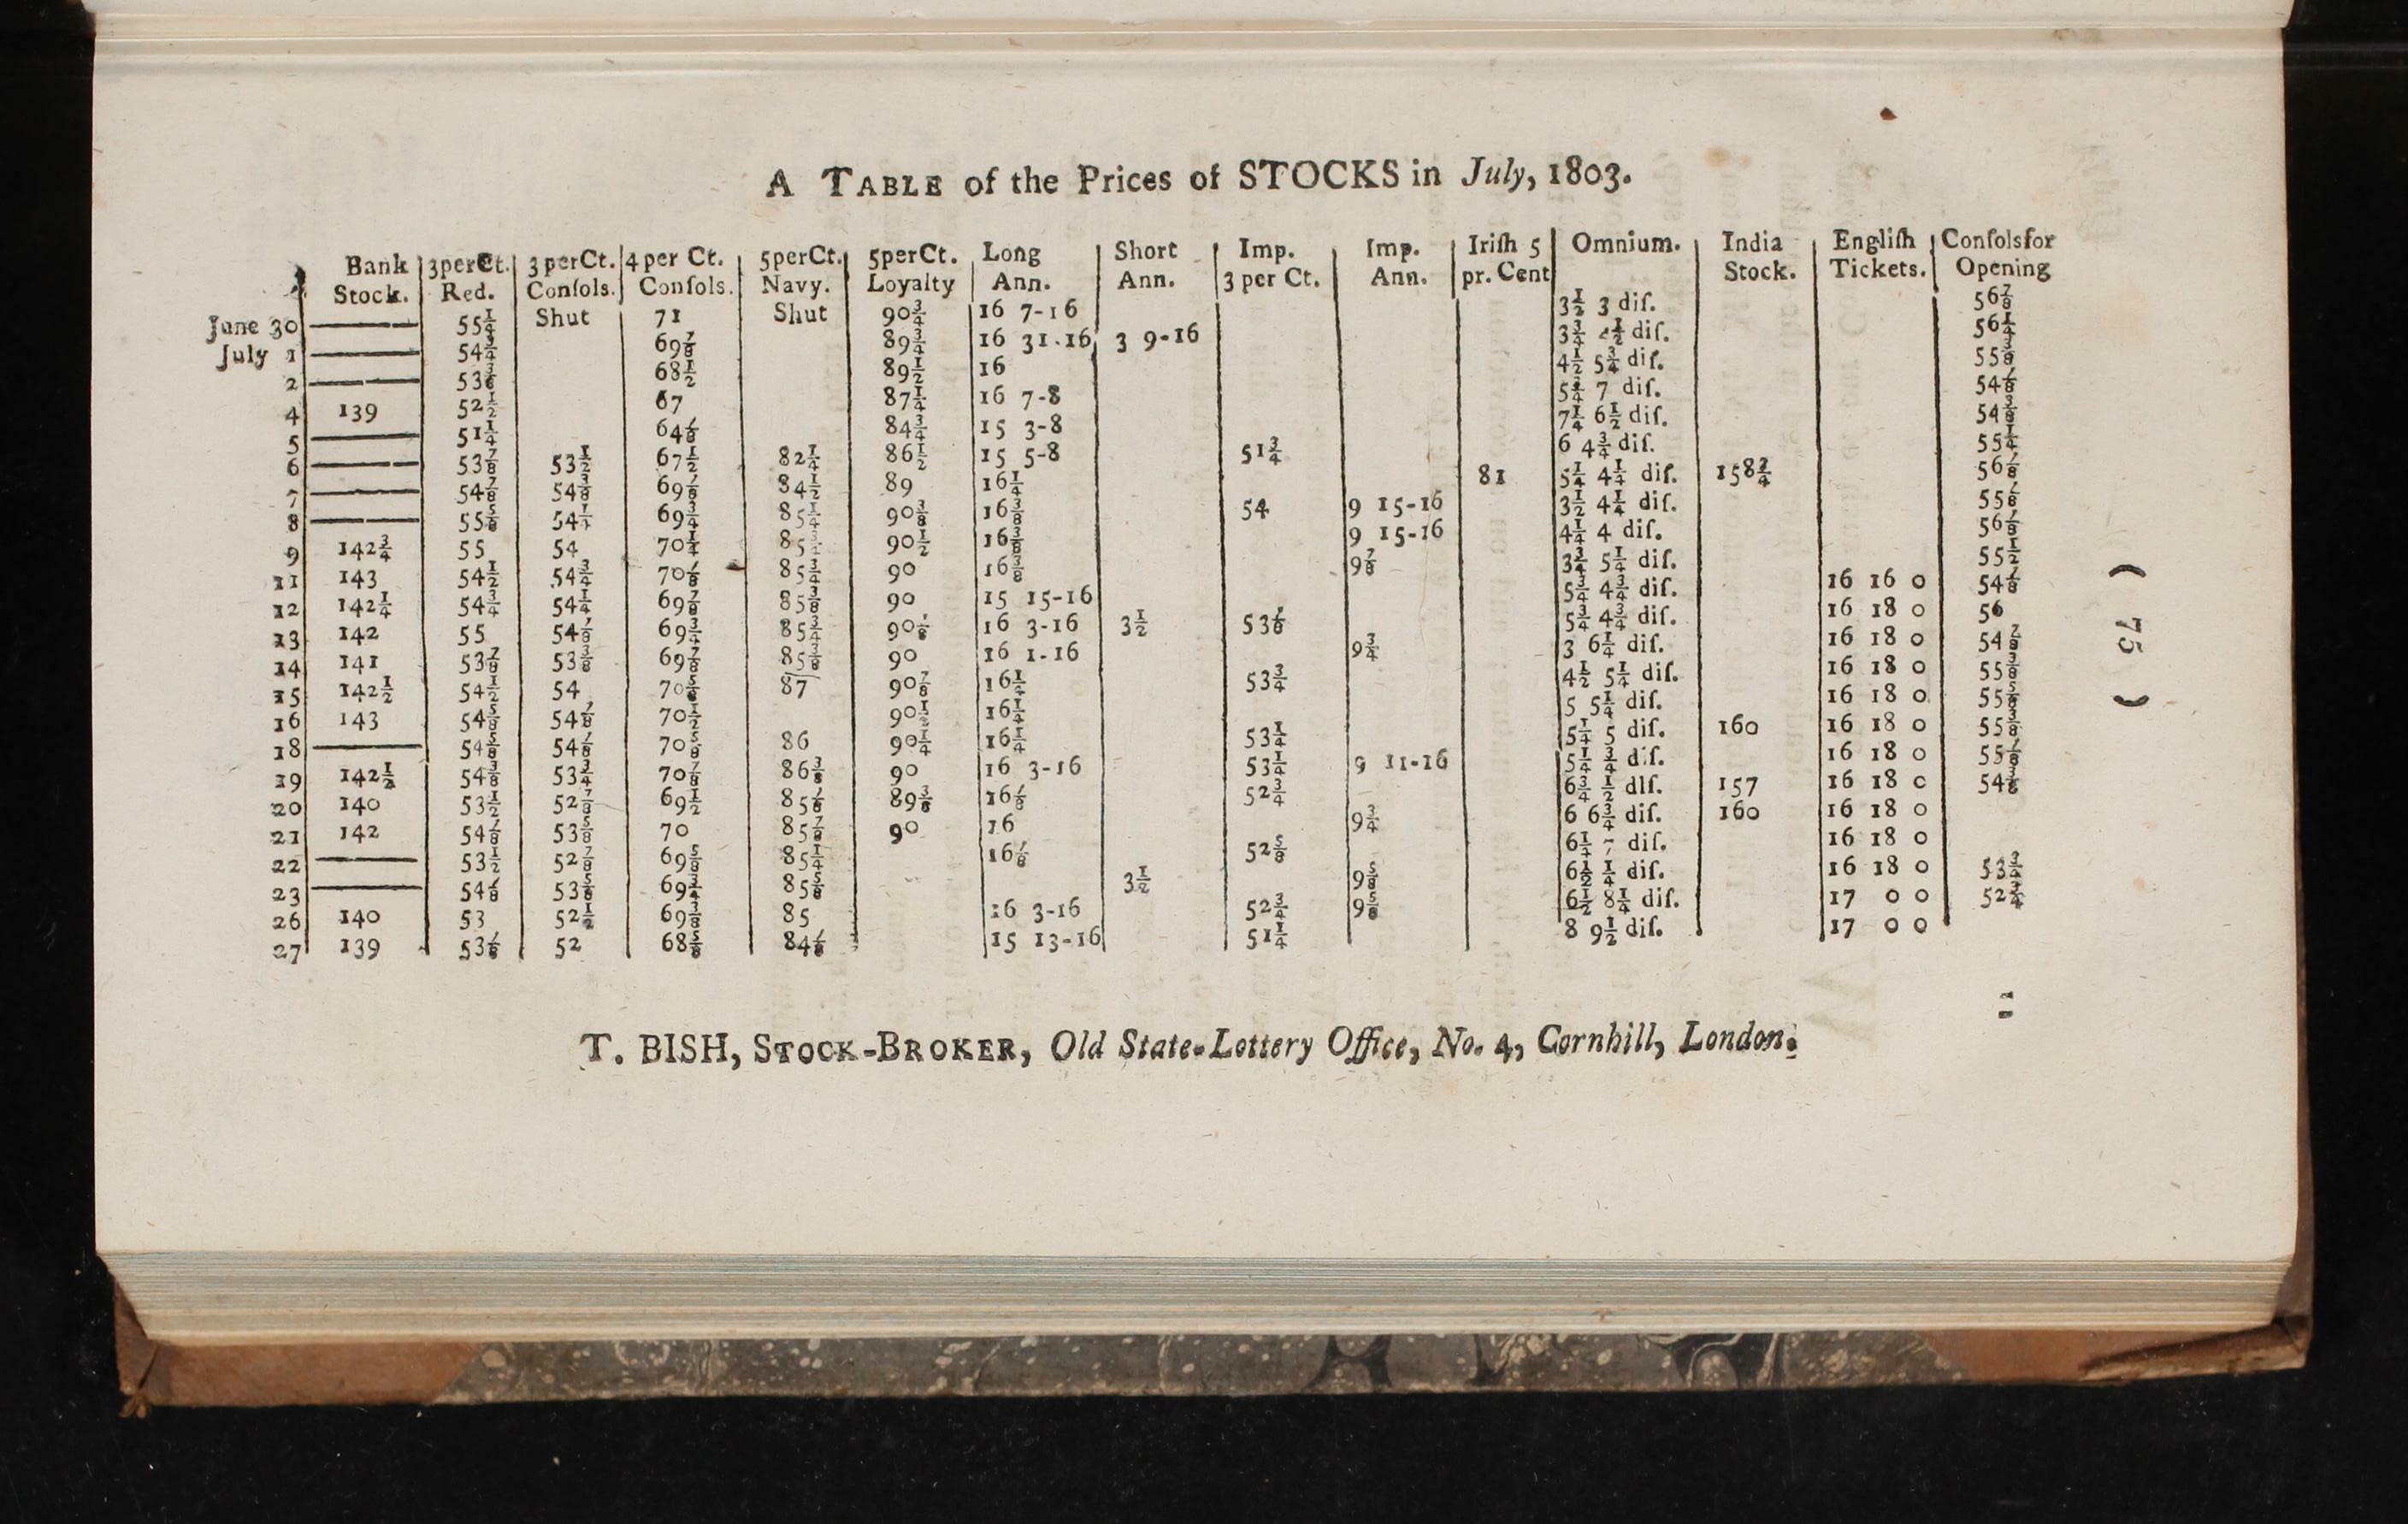 A TABLE of the Prices of STOCKS in July, 1803.
Bank Stock. | 3 per Ct. Red. | 3 per Ct. Conſols. | 4 per Ct. Conſols. | 5 per Ct. Navy. | 5 per Ct. Loyalty | Long Ann. | Short Ann. | Imp. 3 per Ct. | Imp. Ann. | Iriſh 5 pr. Cent | Omnium. | India Stock. | Engliſh Tickets. | Conſols for Opening
June 30 —— 55¼ Shut 71 Shut 90¾ 16 7-16 3½ 3 diſ. 56⅞
July 1 —— 54¾ 69⅞ 89¾ 16 31.16 3 9-16 3¾ ½ diſ. 56¼
2 —— 53⅜ 68½ 89½ 16 4½ 5¾ diſ. 55⅜
4 139 52½ 67 87¼ 16 7-8 5¾ 7 diſ. 54⅛
5 —— 51¼ 64⅛ 84¾ 15 3-8 7¼ 6½ diſ. 54⅜
6 —— 53⅞ 53½ 67½ 82¼ 86½ 15 5-8 51¾ 6 4¾ diſ. 55¼
7 —— 54⅞ 54⅜ 69⅛ 84½ 89 16¼ 81 5¼ 4¼ diſ. 158¾ 56⅛
8 —— 55⅝ 54¼ 69¾ 85¼ 90⅜ 16⅜ 54 9 15-16 3½ 4¼ diſ. 55⅛
9 142¾ 55 54 70¼ 85¾ 90½ 16⅜ 9 15-16 4¼ 4 diſ. 56⅛
11 143 54½ 54¾ 70⅛ 85¾ 90 16⅜ 9⅞ 3¾ 5¼ diſ. 55½
12 142¼ 54¾ 54¼ 69⅞ 85⅜ 90 15 15-16 5¾ 4¾ diſ. 16 16 0 54⅛
13 142 55 54⅛ 69¾ 85¾ 90⅛ 16 3-16 3½ 53⅛ 5¾ 4¾ diſ. 16 18 0 56
14 141 53⅞ 53⅜ 69⅞ 85⅜ 90 16 1-16 9¾ 3 6¼ diſ. 16 18 0 54⅞
15 142½ 54½ 54 70⅝ 87 90⅞ 16¼ 53¾ 4½ 5¼ diſ. 16 18 0 55⅜
16 143 54⅝ 54⅛ 70½ 90½ 16¼ 5 5¼ diſ. 16 18 0 55⅝
18 —— 54⅝ 54⅛ 70⅝ 86 90¼ 16¼ 53¼ 5¼ 5 diſ. 160 16 18 0 55⅜
19 142½ 54⅜ 53¾ 70⅞ 86⅜ 90 16 3-16 53¼ 9 11-16 5¼ ¾ diſ. 16 18 0 55⅛
20 140 53½ 52⅞ 69½ 85⅛ 89⅜ 16⅛ 52¾ 6¾ ½ dlſ. 157 16 18 0 54⅜
21 142 54⅛ 53⅝ 70 85⅞ 90 16 9¾ 6 6¾ diſ. 160 16 18 0
22 —— 53½ 52⅞ 69⅝ 85¼ 16⅛ 52⅝ 6¼ 7 diſ. 16 18 0
23 —— 54⅛ 53⅝ 69¾ 85⅝ 3½ 9⅝ 6½ ¼ diſ. 16 18 0 53¾
26 140 53 52½ 69⅜ 85 16 3-16 52¾ 9⅝ 6½ 8¼ diſ. 17 0 0 52¾
27 139 53⅛ 52 68⅝ 84⅛ 15 13-16 51¼ 8 9½ diſ. 17 0 0
( 75 )
T. BISH, STOCK-BROKER, Old State-Lottery Office, No. 4, Cornhill, London.